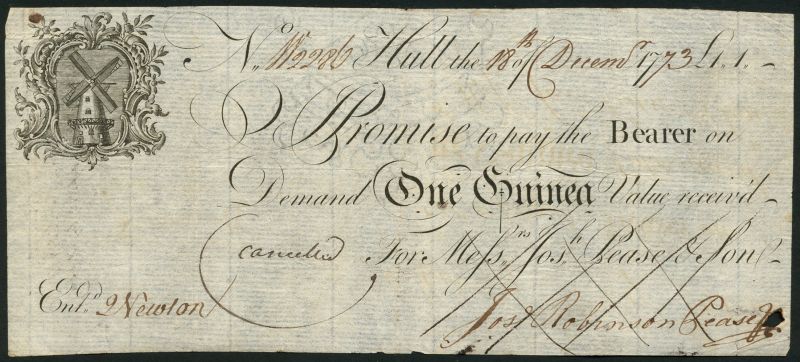 No. W2286 Hull the 18th of Decemr 1773 £1„1„-
I Promise to pay the Bearer on
Demand One Guinea Value receiv'd
cancelled For Messrs Josh Pease & Son
Entd Newton Jos Robinson Pease